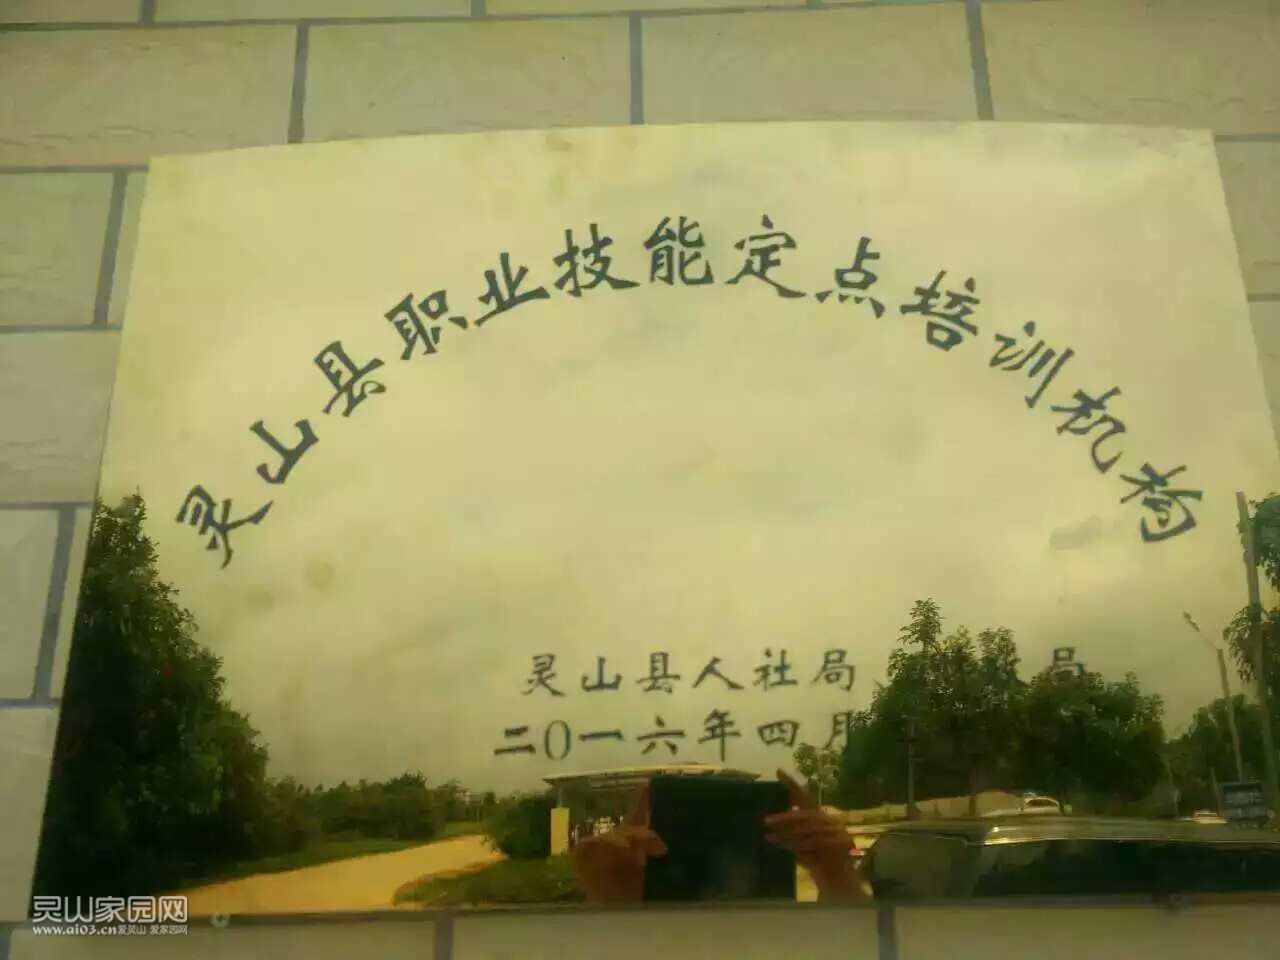 灵山县职业技能定点培训机构
灵山县人社局 局
二0一六年四月
灵山家园网
www.ai03.cn 爱灵山 爱家园网